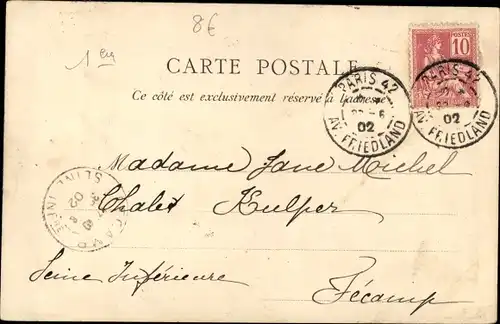 8€
1 em
CARTE POSTALE
Ce côté est exclusivement réservé à l'adresse
POSTES
10
PARIS 42
02
AV. FRIEDLAND
PARIS 42
02
AV. FRIEDLAND
Madame Jane Michel
Chalet Kulper
Seine Inférieure
Fécamp
02